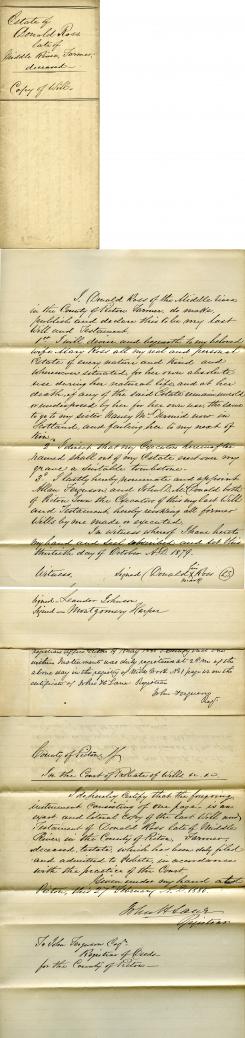 Estate of
Donald Ross
late of
Middle River, Farmer,
deceased
Copy of Will.
I, Donald Ross of the Middle River
in the County of Pictou Farmer, do make,
publish and declare this to be my last
Will and Testament.
1st I will devise and bequeath to my beloved
wife Mary Ross all my real and personal
Estate of every nature and kind and
wherever situated, for her own absolute
use during her natural life, and at her
death, if any of the said Estate remain unsold
or undisposed by her for her own use, the same
to go to my sister Nancy McDermid now in
Scotland, and failing her to my next of
Kin.
2 I direct that my Executors hereinafter
named shall out of my Estate erect over my
grave a suitable tombstone.
3 Lastly hereby nominate and appoint
Allan Ferguson and John D. McDonald both
of Pictou Town the Executors of this my last Will
and Testament hereby revoking all former
Wills by me made or executed.
In witness whereof I have hereto
my hand and seal subscribed and set this
thirtieth day of October A.D. 1879.
Witness. Signed Donald his X mark Ross LS
Signed Leander Johnson
Signed Montgomery Harper
within Instrument was duly registered at
above day in the registry of Wills Book No 1 page on the
certificate of John H Lane Registrar
John Ferguson
Reg.
County of Pictou, SS
In the Court of Probate of Wills
I do hereby Certify that the foregoing
instrument consisting of one page is an
exact and literal Copy of the last Will and
Testament of Donald Ross late of Middle
River in the County of Pictou, Farmer
deceased, testate, which has been duly filed
and admitted to Probate, in accordance
with the practice of this Court.
Given under my hand at
Pictou, this 27 February A.D. 1880.
John H Lane
Registrar
To John Ferguson Esq
Registrar of Deeds
for the County of Pictou